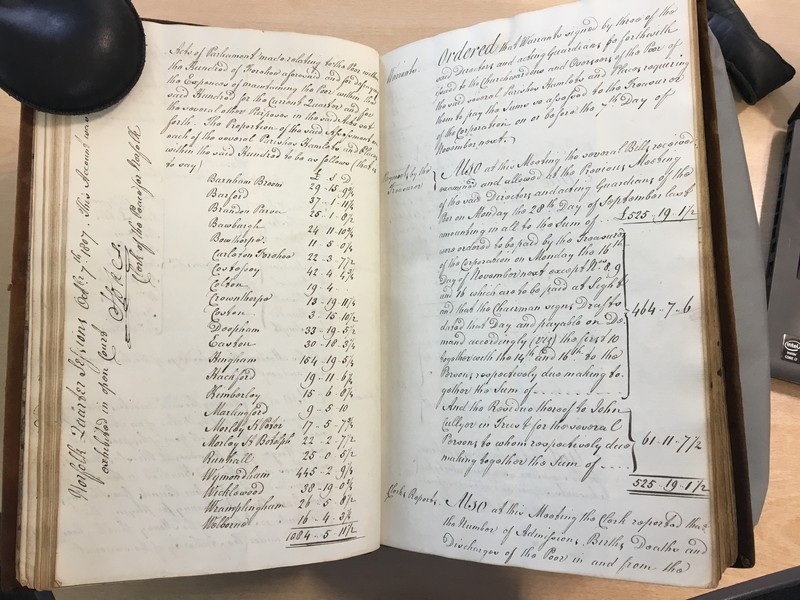 Acts of Parliament made relating to the Poor within
the Hundred of Forehoe aforesaid and for defraying
the Expences of maintaining the Poor within the
said Hundred for the Current Quarter and for
the several other Purposes in the said Acts set
forth. The Proportion of the said Assessment on
each of the several Parishes Hamlets and Places
within the said Hundred to be as follows (that is
to say)
£ S D
Barnham Broom 29-15-9¾
Barford 37-1-11¼
Brandon Parva 25-1-8½
Bawburgh 24 11 10¾
Bowthorpe 11-5 0½
Carleton Forehoe 22-3-7½
Costessey 42-4 4¾
Colton 19-4-
Crownthorpe 13-19 11¼
Coston 3-15 10½
Deopham 33-19-5½
Easton 30-18 3½
Hingham 154-19-5¼
Hackford 19-11-6¼
Kimberley 15-6 8½
Marlingford 9-5 10
Morley St Peter 17-5-7¾
Morley St Botolph 22-2-7½
Runhall 25-0 5½
Wymondham 445-2-9½
Wicklewood 38-19-0¾
Wramplingham 26-5 8½
Welborne 16-4-3¼
1084-5 11½
Norfolk Quarter Sessions Octr. 7th. 1807. This Account was
exhibited in open Court
Clerk of the Peace for Norfolk
Warrants.
Ordered that Warrants signed by three of the
said Directors and acting Guardians do forthwith
issue to the Churchwardens and Overseers of the Poor of
the said several Parishes Hamlets and Places requiring
them to pay the Sums so assessed to the Treasurer
of the Corporation on or before the 7th Day of
November next.
Payments by the
Treasurer
Also at this Meeting the several Bills received
examined and allowed at the Previous Meeting
of the said Directors and acting Guardians of the
Poor on Monday the 28th Day of September last
amounting in all to the Sum of £525-19-1½
are ordered to be paid by the Treasurer
of the Corporation on Monday the 16th
Day of November next except Nos. 8, 9
and 16 which are to be paid at Sight
and that the Chairman signs Drafts
dated that Day and payable on De
mand accordingly (vizt) the first 10
together with the 14th and 16th to the
Persons respectively due making to-
gether the Sum of 464-7-6
And the Residue thereof to John
Cullyer in Trust for the several
Persons to whom respectively due
making together the Sum of 61-11-7½
525-19-1½
Clerks Reports.
Also at this Meeting the Clerk reported that
the Number of Admissions, Births, Deaths and
Discharges of the Poor in and from the
intel
CORE i7